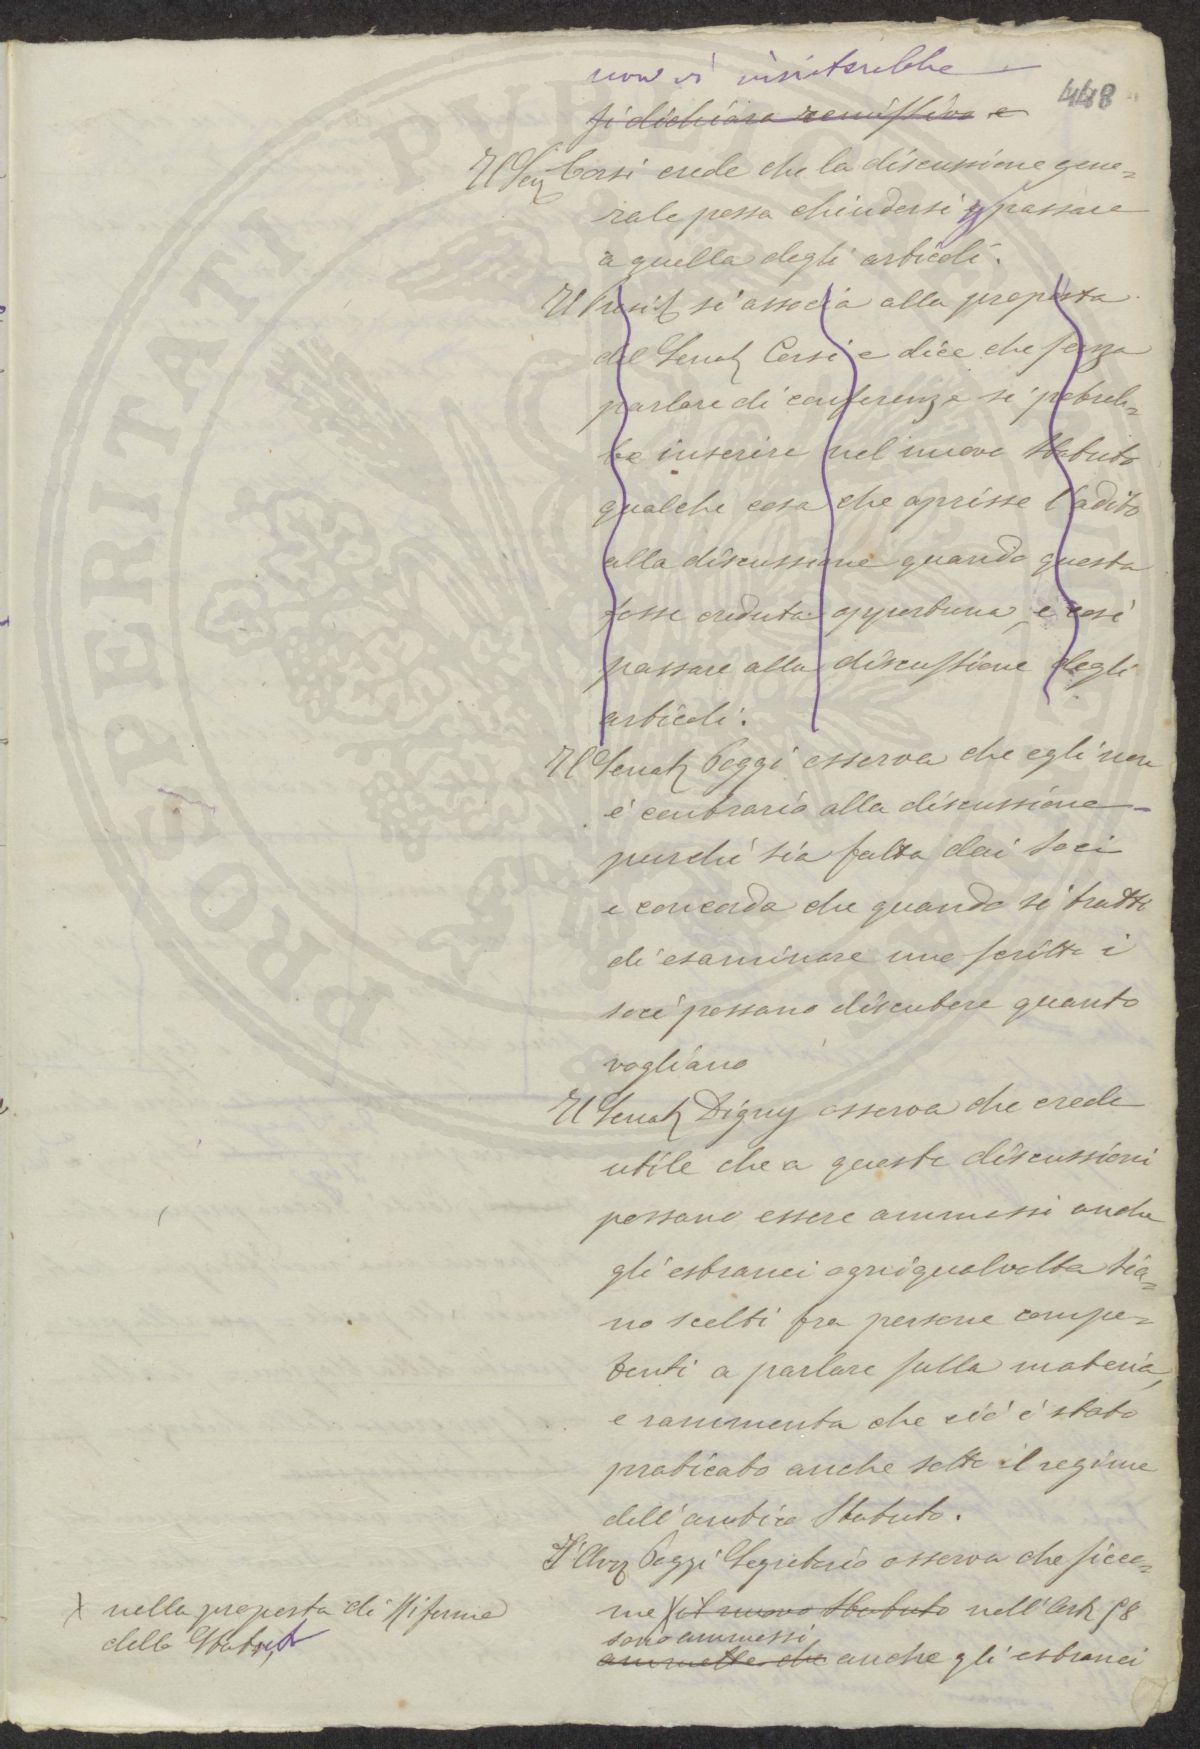 non vi insisterebbe
448
si dichiara remissivo e
Il Sen Corsi crede che la discussione gene=
rale possa chiudersi e passare
a quella degli articoli.
Il Presid si associa alla proposta
del Senat Corsi e dice che senza
parlare di conferenze si potreb=
be inserire nel nuovo Statuto
qualche cosa che aprisse l'adito
alla discussione quando questa
fosse creduta opportuna, e così
passare alla discussione degli
articoli.
Il Senat Poggi osserva che egli non
è contrario alla discussione
purchè sia fatta dai soci
e concorda che quando si tratti
di esaminare uno scritto i
soci possano discutere quanto
vogliano
Il Senat Digny osserva che crede
utile che a queste discussioni
possano essere ammessi anche
gli estranei ogniqualvolta sia=
no scelti fra persone compe=
tenti a parlare sulla materia,
e rammenta che ciò è stato
praticato anche sotto il regime
dell'antico Statuto.
L'Avv Poggi Segretario osserva che sicco=
me X il nuovo Statuto nell'Art 58
X nella proposta di Riforma
dello Statuto,
sono ammessi
ammette che anche gli estranei
PROSPERITATI PVBLICAE